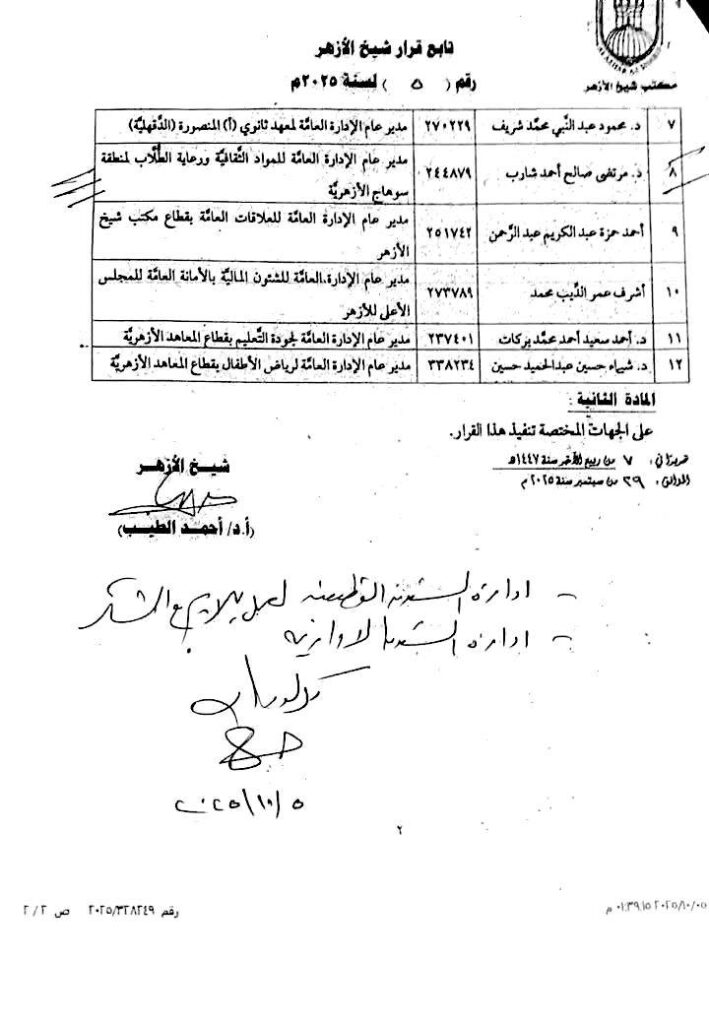 تابع قرار شيخ الأزهر
رقم ( ٥ ) لسنة ٢٠٢٥م
مكتب شيخ الأزهر
٧ د. محمود عبد النَّبي محمَّد شريف ٢٧٠٢٢٩ مدير عام الإدارة العامَّة لمعهد ثانوي (أ) المنصورة (الدَّقهليَّة)
٨ د. مرتضى صالح أحمد شارب ٢٤٤٨٧٩ مدير عام الإدارة العامَّة للمواد الثَّقافيَّة ورعاية الطُّلَّاب لمنطقة
سوهاج الأزهريَّة
٩ أحمد حمزة عبد الكريم عبد الرَّحمن ٢٥١٧٤٢ مدير عام الإدارة العامَّة للعلاقات العامَّة بقطاع مكتب شيخ
الأزهر
١٠ أشرف عمر الدِّيب محمد ٢٧٣٧٨٩ مدير عام الإدارة العامَّة للشئون الماليَّة بالأمانة العامَّة للمجلس
الأعلى للأزهر
١١ د. أحمد سعيد أحمد محمَّد بركات ٢٣٧٤٠١ مدير عام الإدارة العامَّة لجودة التَّعليم بقطاع المعاهد الأزهريَّة
١٢ د. شيماء حسين عبدالحميد حسين ٣٣٨٢٣٤ مدير عام الإدارة العامَّة لرياض الأطفال بقطاع المعاهد الأزهريَّة
المادة الثانية :
على الجهات المختصة تنفيذ هذا القرار.
تحريرًا في : ٧ من ربيع الآخر سنة ١٤٤٧هـ
الموافق : ٢٩ من سبتمبر سنة ٢٠٢٥م
شيخ الأزهر
(أ.د/ أحمد الطيب)
- ادارة
- ادارة
٢٠٢٥/١٠/٥
٢
٢٠٢٥/١٠/٠٥ ٠١:٣٩:١٥ م
رقم ٢٠٢٥/٣٢٨٢٤٩ ص ٢/٢